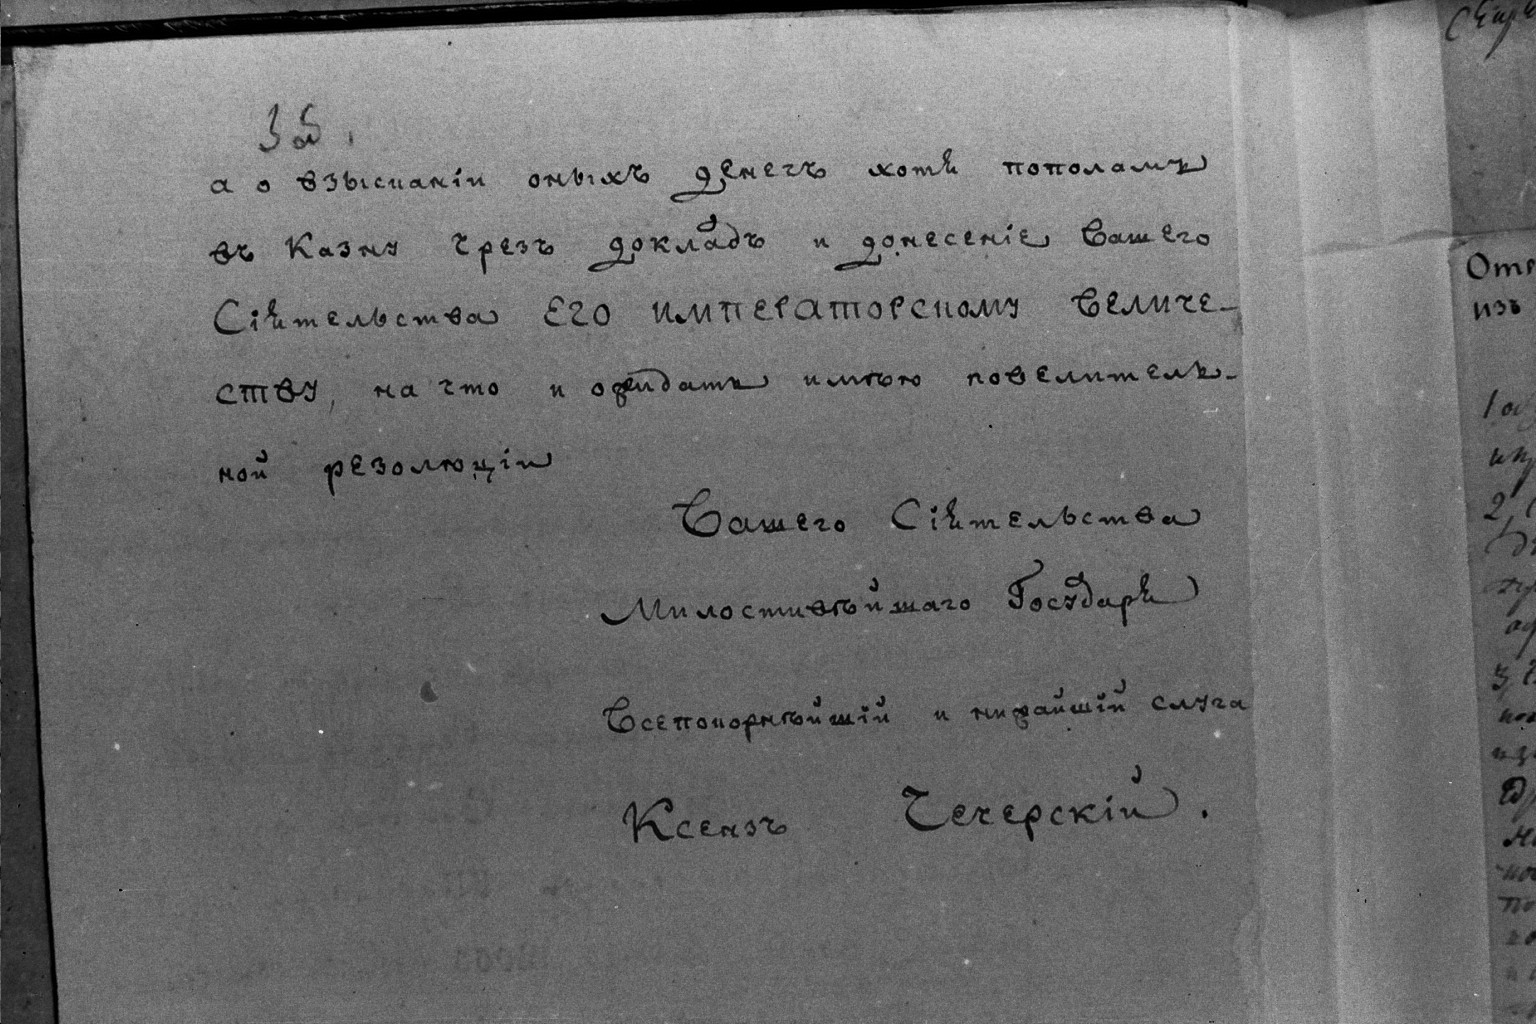 а о взысканіи оныхъ денегъ хотя пополамъ
въ Казну чрезъ докладъ и донесеніе Вашего
Сіятельства ЕГО ИМПЕРАТОРСКОМУ Величе-
ству, на что и ожидать имѣю повелитель-
ной резолюціи
Вашего Сіятельства
Милостивѣйшаго Государя
Всепокорнѣйшій и нижайшій слуга
Ксензъ Чечерскій.
изъ